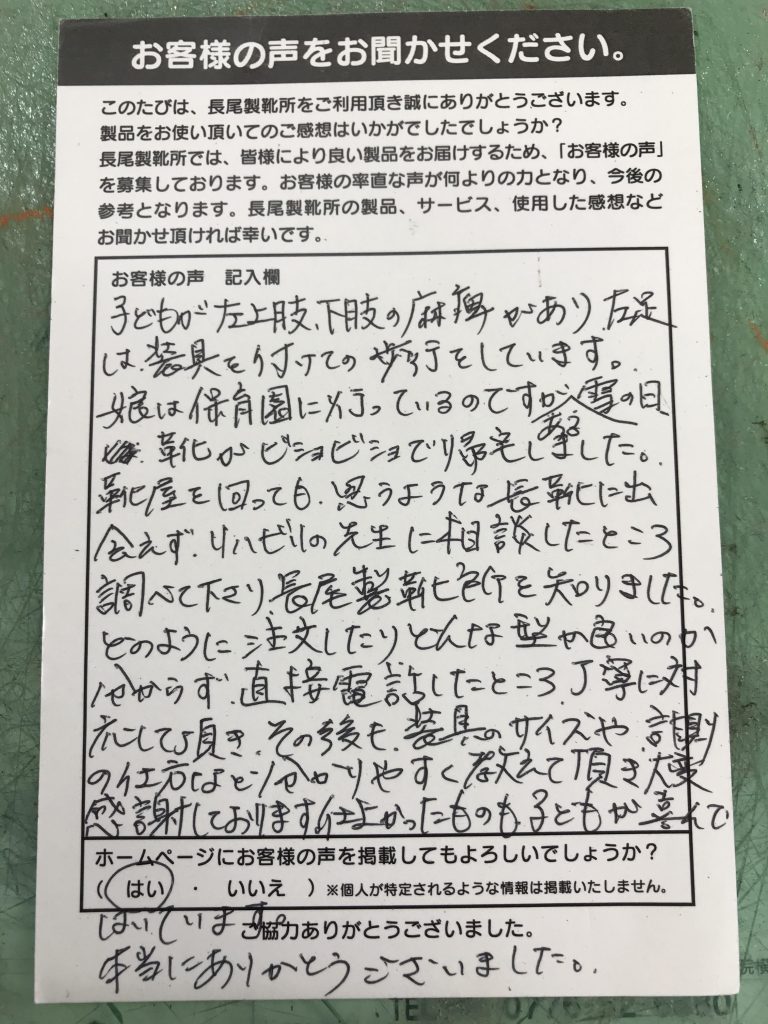 お客様の声をお聞かせください。
このたびは、長尾製靴所をご利用頂き誠にありがとうございます。
製品をお使い頂いてのご感想はいかがでしたでしょうか？
長尾製靴所では、皆様により良い製品をお届けするため、「お客様の声」
を募集しております。お客様の率直な声が何よりの力となり、今後の
参考となります。長尾製靴所の製品、サービス、使用した感想など
お聞かせ頂ければ幸いです。
お客様の声　記入欄
子どもが左上肢、下肢の麻痺があり、左足
は、装具を付けての歩行をしています。
娘は保育園に行っているのですが、ある雪の日
靴がビショビショで帰宅しました。
靴屋を回っても、思うような長靴に出
会えず、リハビリの先生に相談したところ
調べて下さり、長尾製靴所を知りました。
どのように注文したりどんな型が良いのか
分からず、直接電話したところ、丁寧に対
応して頂き、その後も、装具のサイズや、計測
の仕方など分かりやすく教えて頂き大変
感謝しております。仕上がったものも、子どもが喜んで
ホームページにお客様の声を掲載してもよろしいでしょうか？
（ はい ・ いいえ ）※個人が特定されるような情報は掲載いたしません。
はいています。
ご協力ありがとうございました。
本当にありがとうございました。